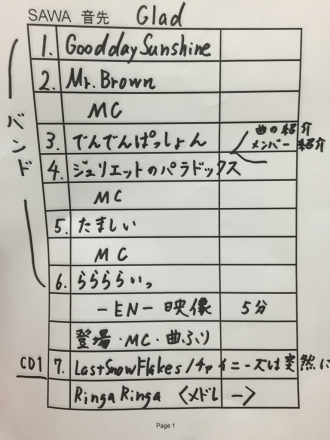 SAWA 音先 Glad
バンド
1. Good day Sunshine
2. Mr. Brown
MC
3. でんでんぱっしょん
曲の紹介
メンバー紹介
4. ジュリエットのパラドックス
MC
5. たましい
MC
6. らららいっ
－EN－映像 5分
登場・MC・曲ふり
CD1 7. Last Snow Flakes / チャイニーズは突然に
Ringa Ringa 〈メドレー〉
Page 1